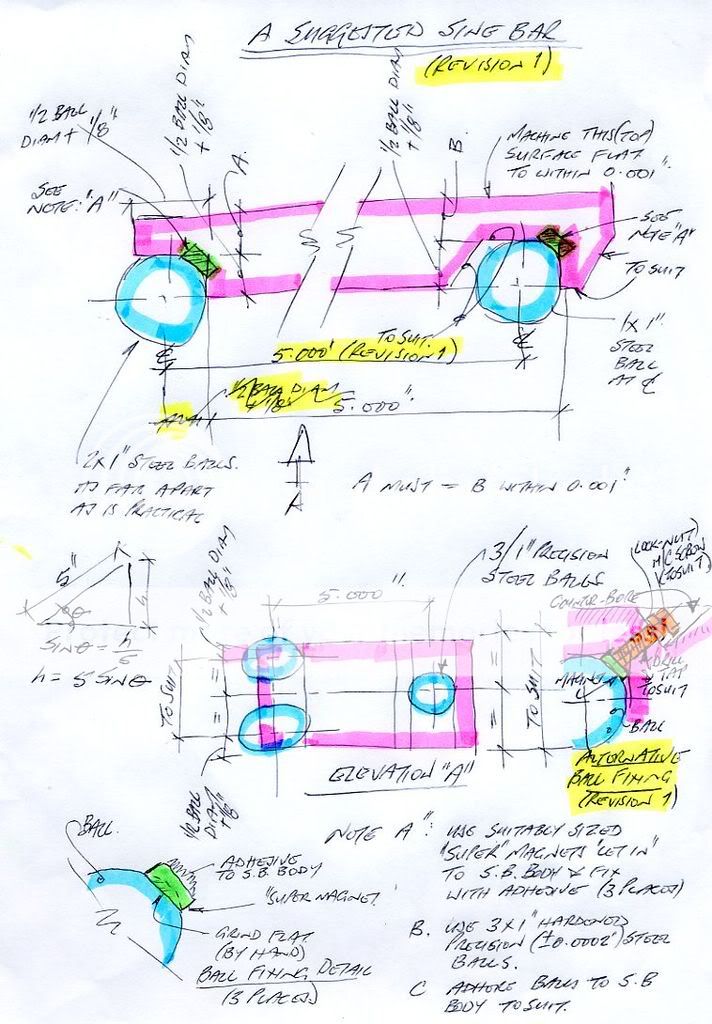 A SUGGESTED SINE BAR
(REVISION 1)
1/2 BALL
DIAM + 1/8"
1/2 BALL DIAM
+ 1/8"
A.
1/2 BALL DIAM
+ 1/8"
B.
MACHINE THIS (TOP)
SURFACE FLAT
TO WITHIN 0.001".
SEE
NOTE: "A"
SEE
NOTE "A"
TO SUIT
TO SUIT.
5.000" (REVISION 1)
1/2 BALL DIAM
+ 1/8"
5.000".
1 X 1"
STEEL
BALL
AT ℄
℄
℄
2 X 1" STEEL BALLS.
AS FAR APART
AS IS PRACTICAL
A
A MUST = B WITHIN 0.001"
5"
h
θ
SINθ = h/5
h = 5 SINθ
1/2 BALL DIAM
+ 1/8"
5.000".
3/1" PRECISION
STEEL BALLS
LOCK-NUT/
M/C SCREW
(TO SUIT)
COUNTER-BORE
DRILL
& TAP
TO SUIT
MAGNET
BALL
TO SUIT
= =
= =
TO SUIT
1/2 BALL
DIAM
+ 1/8"
ELEVATION "A"
ALTERNATIVE
BALL FIXING
(REVISION 1)
NOTE A": USE SUITABLY SIZED
"SUPER" MAGNETS "LET IN"
TO S.B. BODY & FIX
WITH ADHESIVE (3 PLACES)
B. USE 3 X 1" HARDENED
PRECISION (±0.0002") STEEL
BALLS.
C ADHERE BALLS TO S.B
BODY TO SUIT.
BALL.
ADHESIVE
TO S.B. BODY
"SUPER MAGNET"
GRIND FLAT
(BY HAND)
BALL FIXING DETAIL
(3 PLACES)